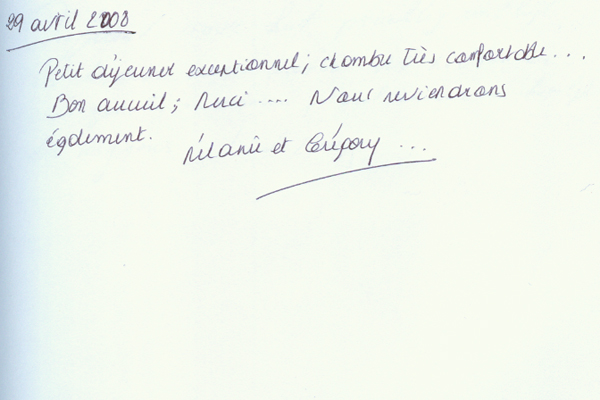 29 avril 2008
Petit déjeuner exceptionnel; chambre très confortable...
Bon accueil; Merci .... Nous reviendrons
également.
Mélanie et Grégory ...